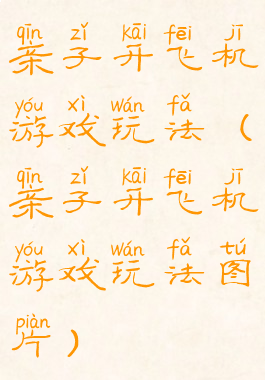 qīn zǐ kāi fēi jī
亲子开飞机
yóu xì wán fǎ
游戏玩法（
qīn zǐ kāi fēi jī
亲子开飞机
yóu xì wán fǎ tú
游戏玩法图
piàn
片）